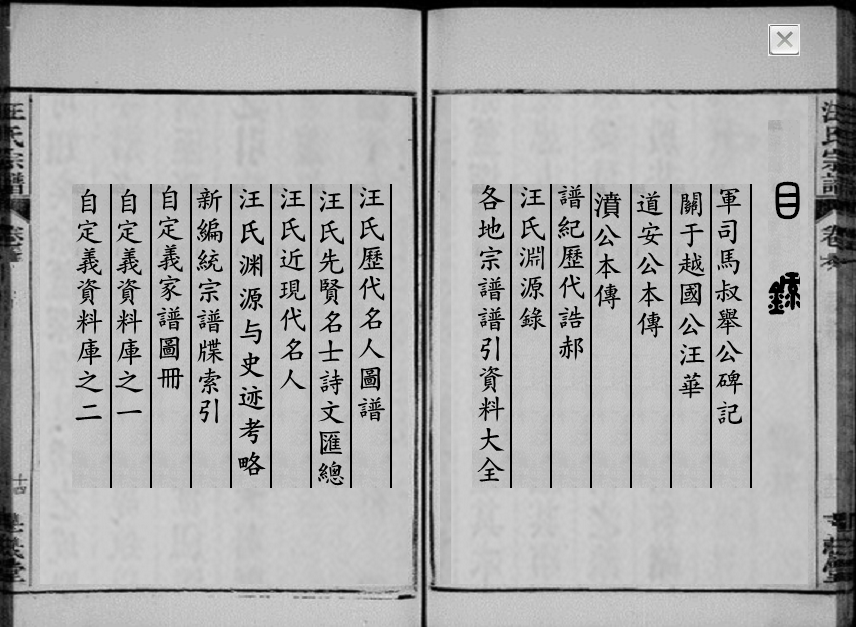 目錄
軍司馬叔舉公碑記
關于越國公汪華
道安公本傳
濆公本傳
譜紀歷代誥郝
汪氏淵源錄
各地宗譜譜引資料大全
汪氏歷代名人圖譜
汪氏先賢名士詩文匯總
汪氏近現代名人
汪氏渊源与史迹考略
新編統宗譜牒索引
自定義家譜圖冊
自定義資料庫之一
自定義資料庫之二
汪氏宗譜
汪氏宗譜